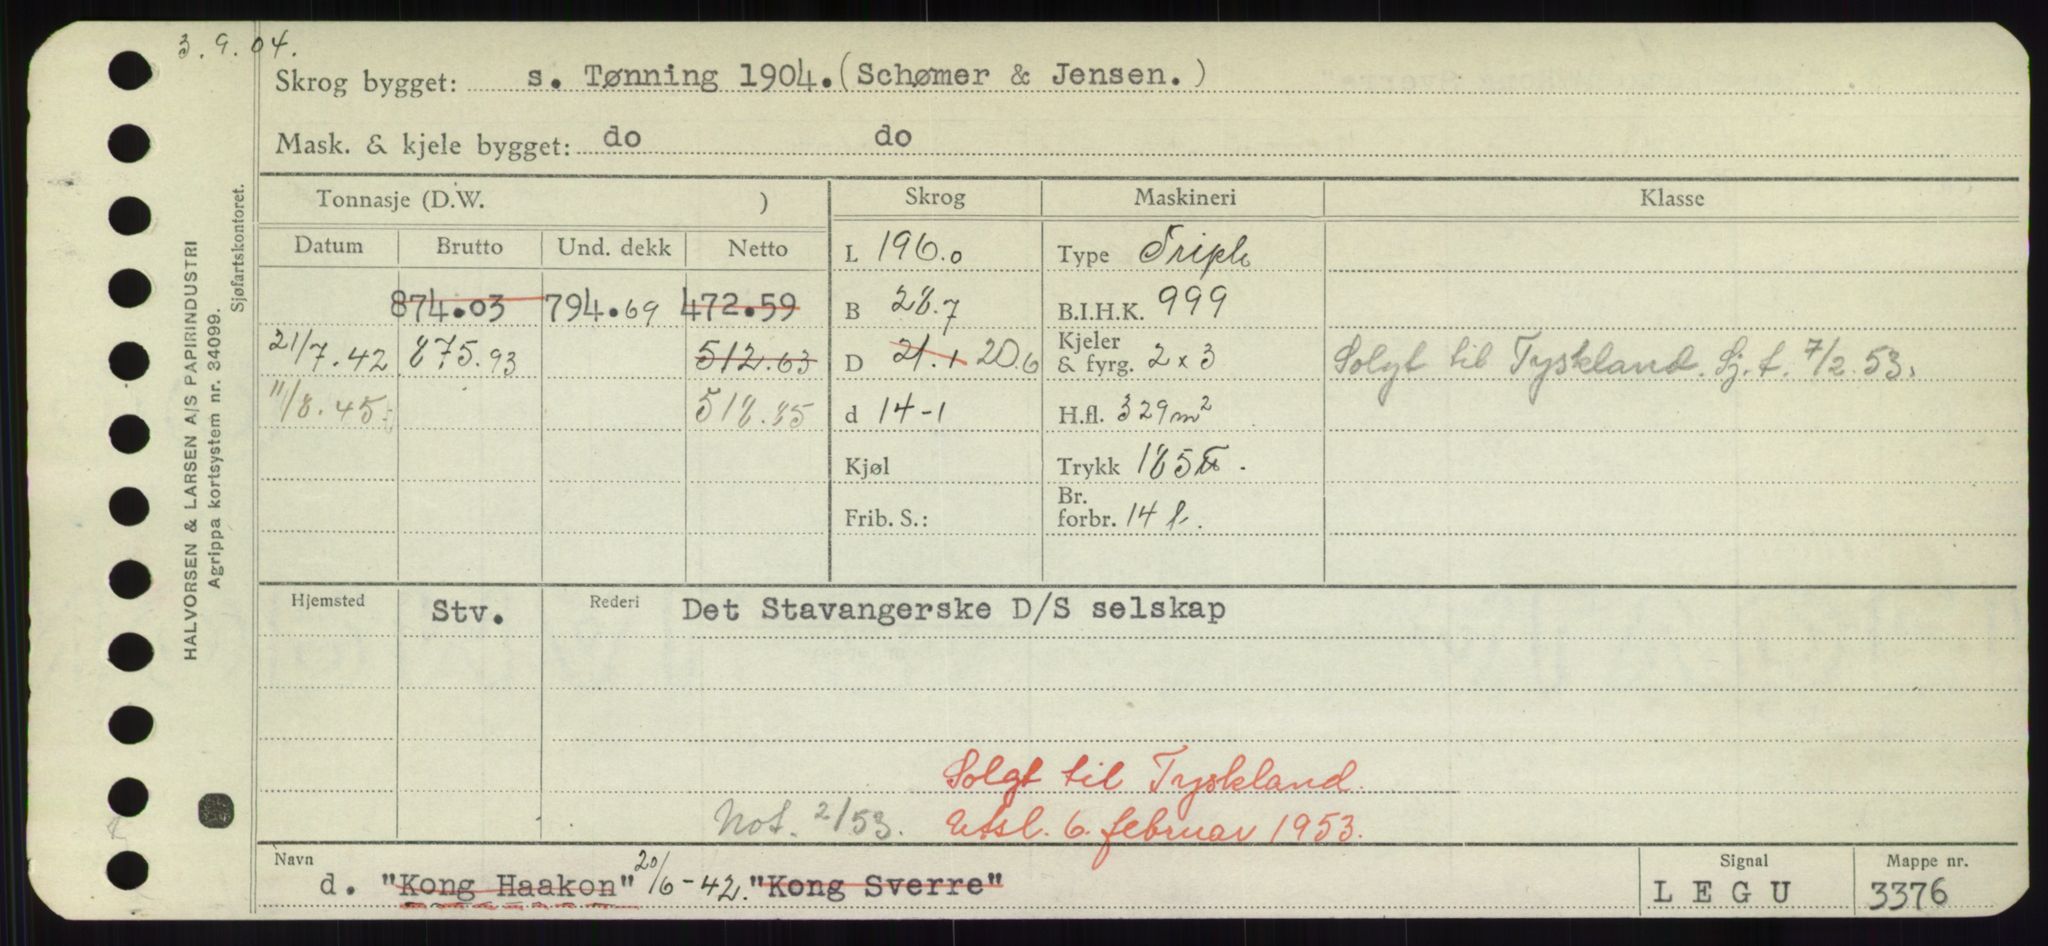 3.9.04.
Skrog bygget: s. Tønning 1904. (Schømer & Jensen.)
Mask. & kjele bygget: do do
Tonnasje (D.W. ) Skrog Maskineri Klasse
Datum Brutto Und. dekk Netto L 196.0 Type Triple
874.03 794.69 472.59 B 28.7 B.I.H.K. 999
21/7.42 875.93 512.63 D 21.1 20.6 Kjeler & fyrg. 2 x 3 Solgt til Tyskland. Sj.f. 7/2.53.
11/8.45 518.85 d 14-1 H.fl. 329 m²
Kjøl Trykk 185 ℔.
Frib. S.: Br. forbr. 14 t.
Hjemsted Stv. Rederi Det Stavangerske D/S selskap
Solgt til Tyskland.
Not. 2/53. Utsl. 6. februar 1953.
Navn d. "Kong Haakon" 20/6-42. "Kong Sverre" Signal L E G U Mappe nr. 3376
HALVORSEN & LARSEN A/S PAPIRINDUSTRI
Agrippa kortsystem nr. 34099.
Sjøfartskontoret.